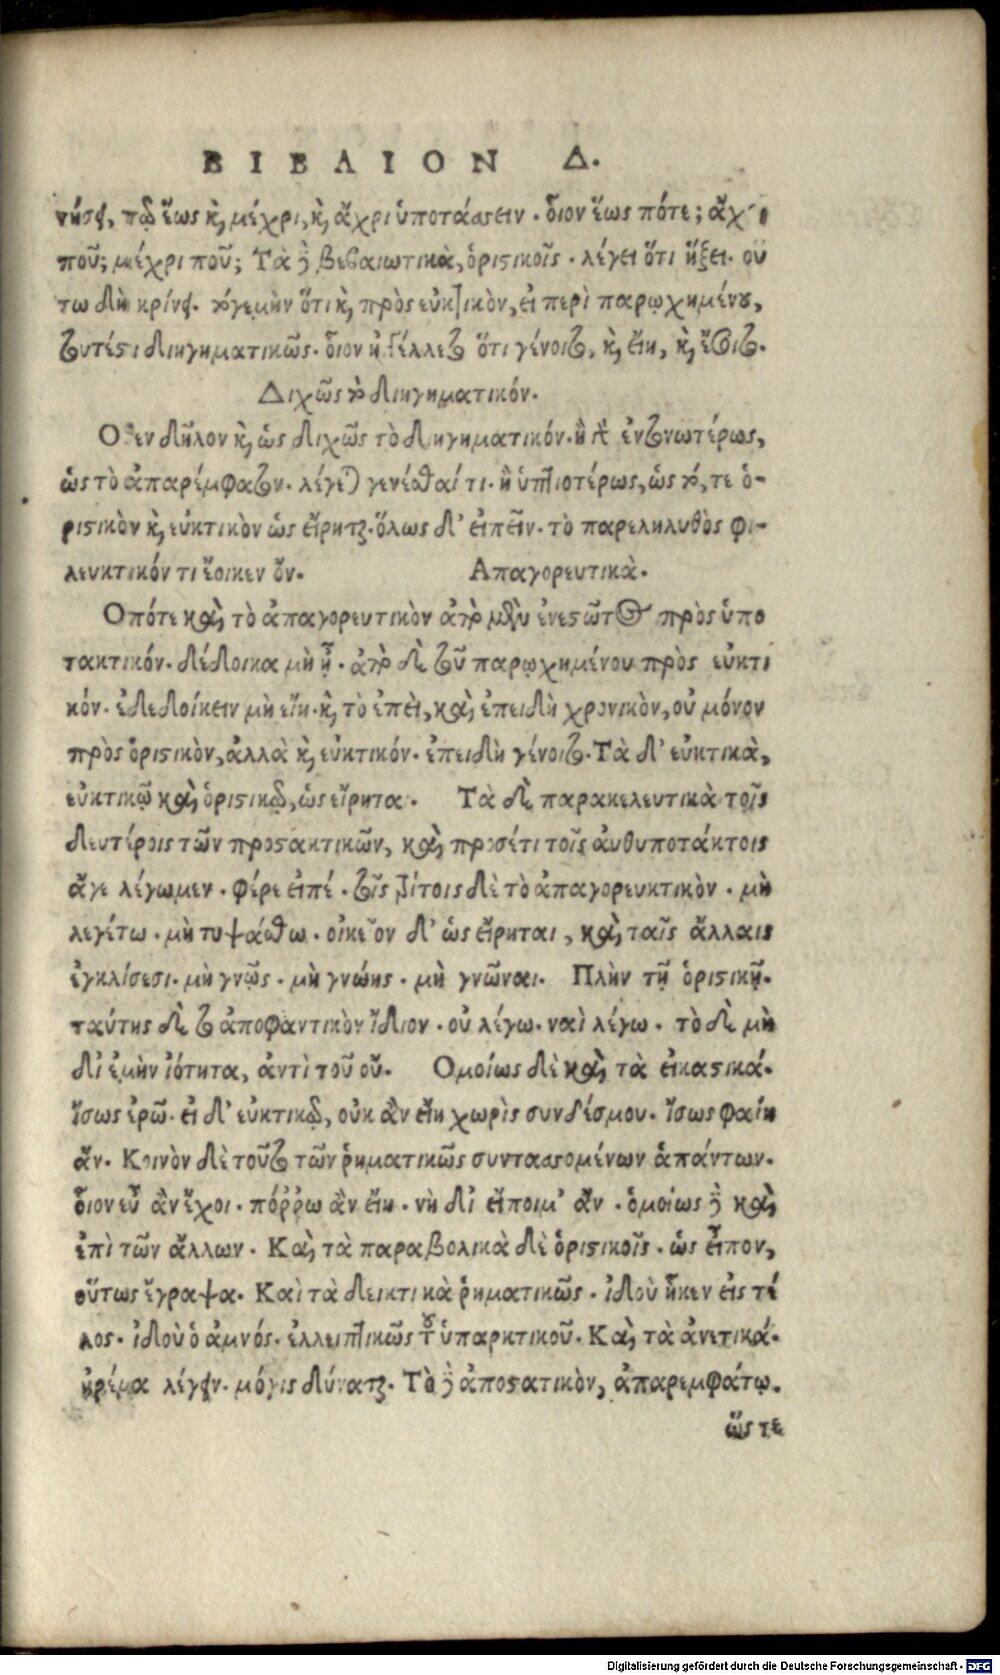 ΒΙΒΛΙΟΝ Δ.
τῷ ἕως καὶ μέχρι, καὶ ἄχρι ὑποτάσσειν. οἷον ἕως πότε; ἄχρι
ποῦ; μέχρι ποῦ; Τὰ δὲ βεβαιωτικὰ, ὁριστικοῖς. λέγει ὅτι ἥξει. οὕ
τω δὴ κρίνειν. λέγεμὴν ὅτι καὶ πρὸς εὐκτικὸν, εἰ περὶ παρῳχημένου,
τουτέστι διηγηματικῶς. οἷον ὅτι γένοιτο, καὶ εἴη, καὶ
Διχῶς τὸ διηγηματικόν.
Οθεν δῆλον καὶ ὡς διχῶς τὸ διηγηματικόν. ἢ γὰρ ἐντονωτέρως,
ὡς τὸ ἀπαρέμφατον. λέγεται γενέσθαί τι. ἢ ὑπτιοτέρως, ὡς τό, τε ὁ-
ριστικὸν καὶ εὐκτικὸν ὡς εἴρηται. ὅλως δ' εἰπεῖν. τὸ παρεληλυθὸς φι-
λευκτικόν τι ἔοικεν ὄν. Απαγορευτικὰ.
Οπότε καὶ τὸ ἀπαγορευτικὸν ἀπὸ μὲν ἐνεστῶτος πρὸς ὑπο
τακτικόν. δέδοικα μὴ ᾖ. ἀπὸ δὲ τοῦ παρῳχημένου πρὸς εὐκτι
κόν. ἐδεδοίκειν μὴ εἴη. καὶ τὸ ἐπεὶ, καὶ ἐπειδὴ χρονικὸν, οὐ μόνον
πρὸς ὁριστικὸν, ἀλλὰ καὶ εὐκτικόν. ἐπειδὴ γένοιτο. Τὰ δ' εὐκτικὰ,
εὐκτικῷ καὶ ὁριστικῷ, ὡς εἴρηται. Τὰ δὲ παρακελευτικὰ τοῖς
δευτέροις τῶν προστακτικῶν, καὶ προσέτι τοῖς ἀνθυποτάκτοις
ἄγε λέγωμεν. φέρε εἰπέ. τοῖς τρίτοις δὲ τὸ ἀπαγορευκτικὸν. μὴ
λεγέτω. μὴ τυψάσθω. οἰκεῖον δ' ὡς εἴρηται, καὶ ταῖς ἄλλαις
ἐγκλίσεσι. μὴ γνῷς. μὴ γνώης. μὴ γνῶναι. Πλὴν τῇ ὁριστικῇ.
ταύτης δὲ τὸ ἀποφαντικὸν ἴδιον. οὐ λέγω. ναὶ λέγω. τὸ δὲ μὴ
δι ἐμὴν ἰότητα, ἀντὶ τοῦ οὔ. Ομοίως δὲ καὶ τὰ εἰκαστικά.
ἴσως ἐρῶ. εἰ δ' εὐκτικῷ, οὐκ ἂν εἴη χωρὶς συνδέσμου. ἴσως φαίη
ἄν. Κοινὸν δὲ τοῦτο τῶν ῥηματικῶς συντασσομένων ἁπάντων.
οἷον εὖ ἂν ἔχοι. πόῤῥω ἂν εἴη. νὴ δί εἴποιμ' ἄν. ὁμοίως δὲ καὶ
ἐπὶ τῶν ἄλλων. Καὶ τὰ παραβολικὰ δὲ ὁριστικοῖς. ὡς εἶπον,
οὕτως ἔγραψα. Καὶ τὰ δεικτικὰ ῥηματικῶς. ἰδοὺ ἧκεν εἰς τέ
λος. ἰδοὺ ὁ ἀμνός. ἐλλειπτικῶς τοῦ ὑπαρκτικοῦ. Καὶ τὰ ἀνετικά.
ἠρέμα λέγειν. μόγις δύναται. Τὸ δὲ ἀποστατικὸν, ἀπαρεμφάτῳ.
ὥς τε
Digitalisierung gefördert durch die Deutsche Forschungsgemeinschaft - DFG